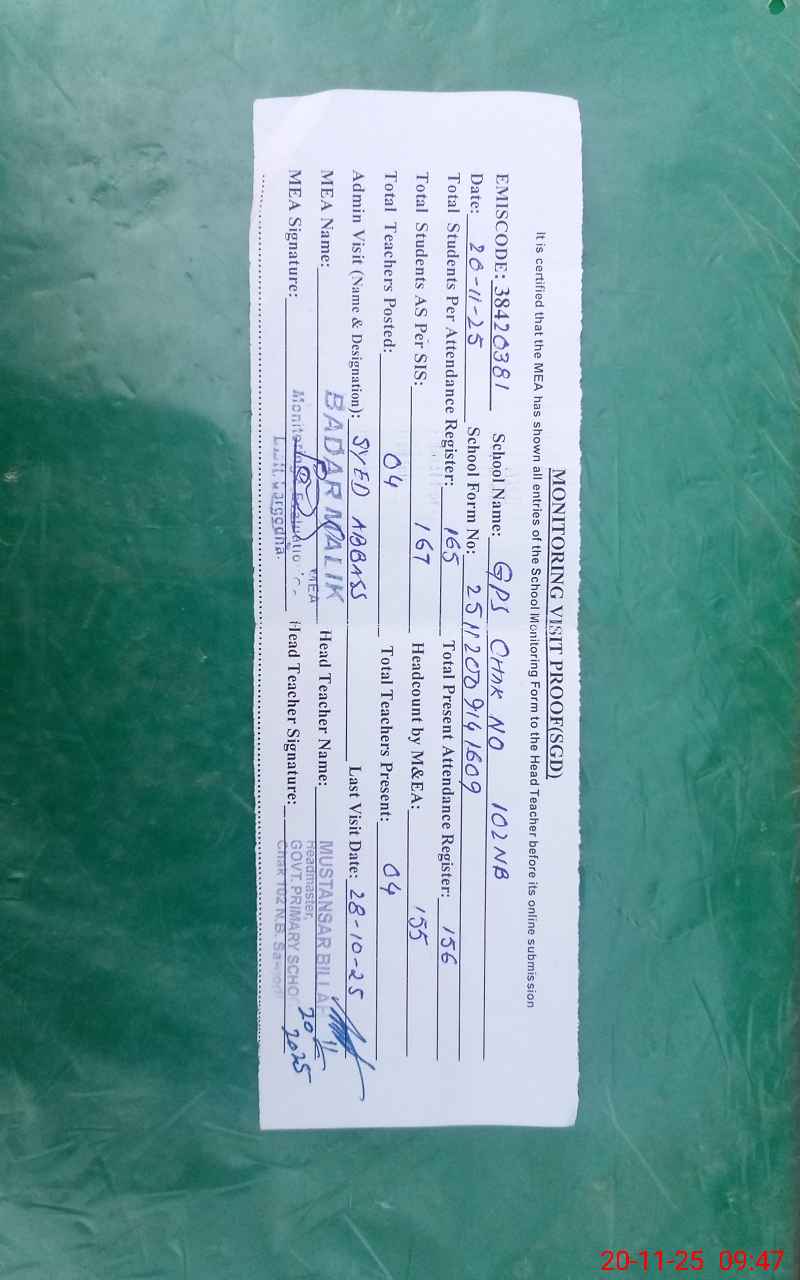 MONITORING VISIT PROOF(SGD)
It is certified that the MEA has shown all entries of the School Monitoring Form to the Head Teacher before its online submission
EMISCODE: 38420381 School Name: GPS CHAK NO 102 NB
Date: 20-11-25 School Form No: 25112009141609
Total Students Per Attendance Register: 165 Total Present Attendance Register: 156
Total Students AS Per SIS: 167 Headcount by M&EA: 155
Total Teachers Posted: 04 Total Teachers Present: 04
Admin Visit (Name & Designation): SYED ABBASS Last Visit Date: 28-10-25
MEA Name: BADAR MALIK MEA Head Teacher Name: MUSTANSAR BILLAH
MEA Signature: Monitoring & Evaluation Head Teacher Signature: Headmaster,
GOVT. PRIMARY SCHO
Chak 102 N.B.
20 11
2025
20-11-25 09:47